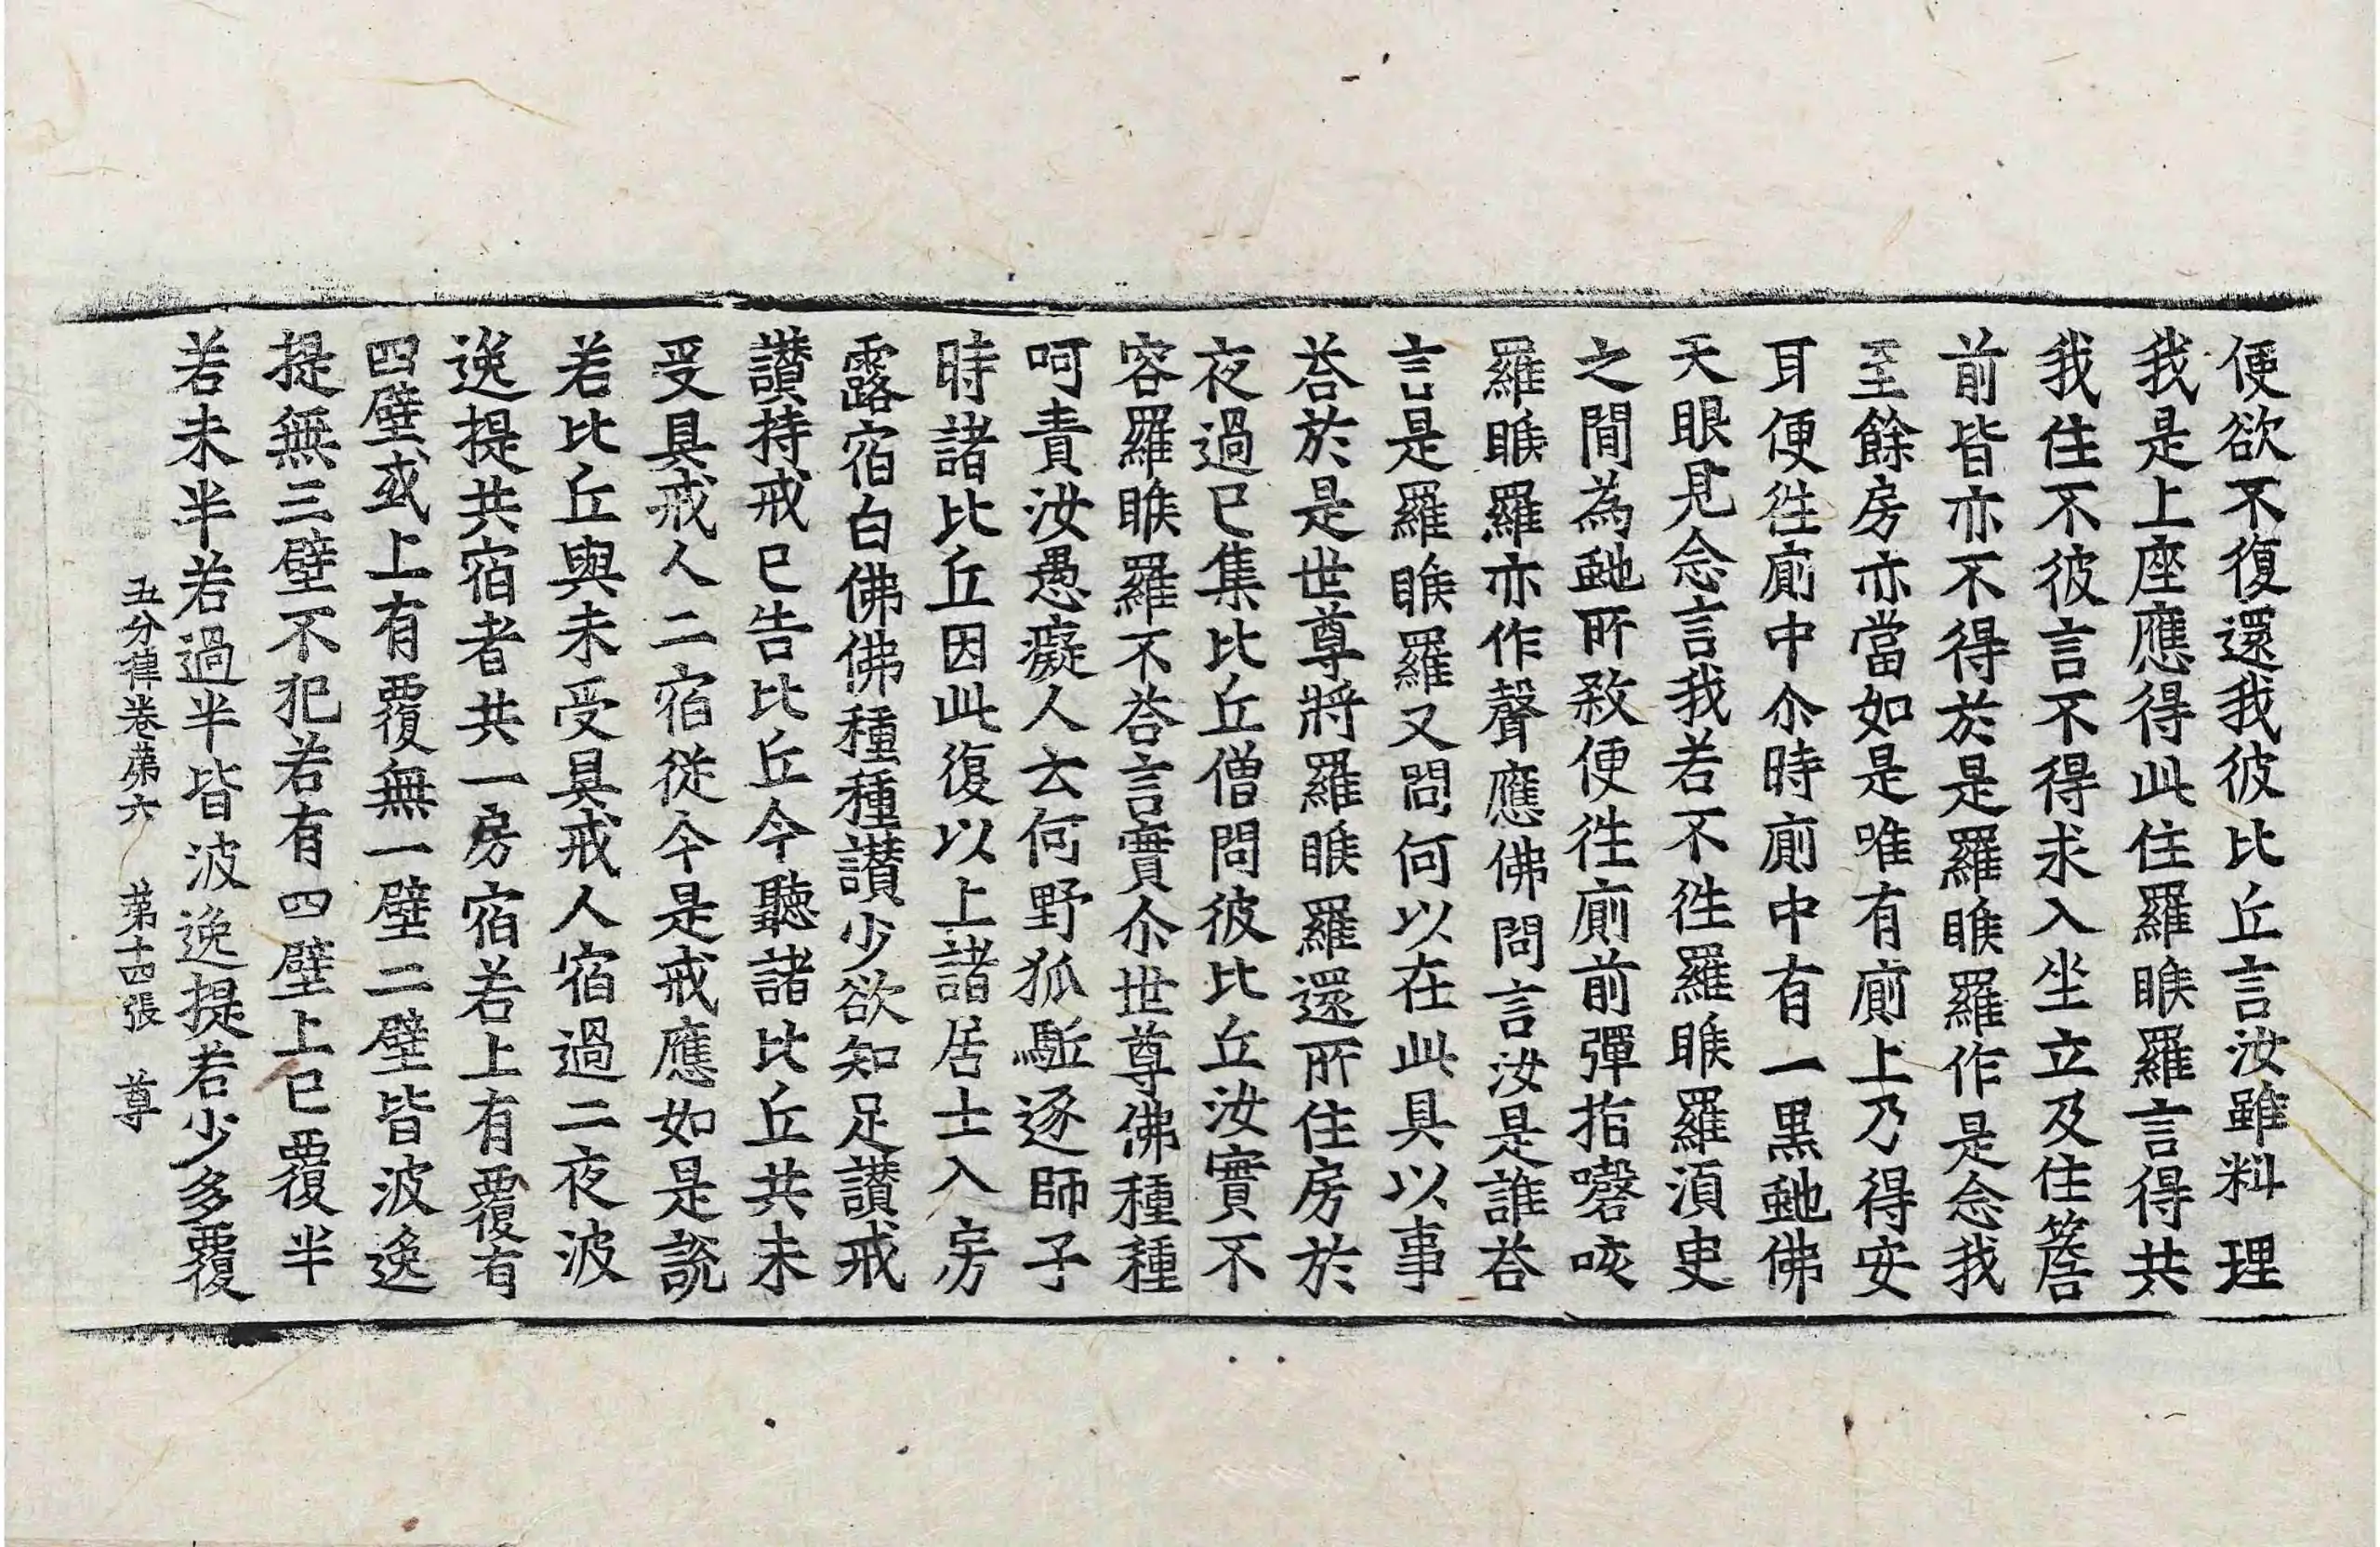 便欲不復還我彼比丘言汝雖料理
我是上座應得此住羅睺羅言得共
我住不彼言不得求入坐立及住簷
前皆亦不得於是羅睺羅作是念我
至餘房亦當如是唯有廁上乃得安
耳便往廁中尒時廁中有一黒虵佛
天眼見念言我若不往羅睺羅湏臾
之間為虵所敎便往廁前彈指謦咳
羅睺羅亦作聲應佛問言汝是誰荅
言是羅睺羅又問何以在此具以事
荅於是世尊將羅睺羅還所住房於
夜過已集比丘僧問彼比丘汝實不
容羅睺羅不荅言實尒世尊佛種種
呵責汝愚癡人云何野狐駈逐師子
時諸比丘因此復以上諸居士入房
露宿白佛佛種種讃少欲知足讃戒
讃持戒已告比丘今聽諸比丘共未
受具戒人二宿従今是戒應如是說
若比丘與未受具戒人宿過二夜波
逸提共宿者共一房宿若上有覆有
四壁或上有覆無一壁二壁皆波逸
提無三壁不犯若有四壁上已覆半
若未半若過半皆波逸提若少多覆
五分律卷苐六　苐十四張　尊